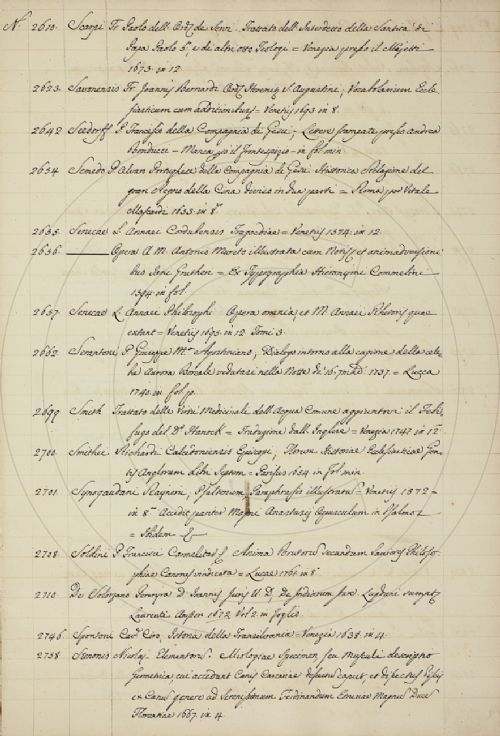 N.° 2610. Scarpi Fr. Paolo dell' Ord.e de Servi. Trattato dell' Interdetto della Santità di
Papa Paolo 5.° e di altri otto Teologi = Venezia presso il Mejetti
1673. in 12
2623. Fr. Joannis Bernardi Ord. S. Augustini; Vocabolarium Eccle-
siasticum cum additionibus = Venetiis 1693 in 8.
2642 P. Francesco della Compagnia di Gesù; Lettere stampate presso Andrea
= Manca poi il frontespizio = in fol. min.
2654 Semedo P. Alvaro Portughese della Compagnia di Gesù Historica Relazione del
gran Regno della Cina divisa in due parti = Roma per Vitale
Mascardi 1653. in 8.°
Senecae L. Annaei Cordubensis Tragoediae = Venetiis in 12.
2656. Opera A M. Antonio Mureto illustrata cum Notis et animadversioni-
bus Jani Gruteri = Ex Typographia Hieronymi Commelini
1594 in fol.
2657 Senecae L. Annaei Philosophi Opera omnia; et M. Annaei Rhetoris quae
extant = Venetiis 1695. in 12. Tomi 3.
2662. P. Giuseppe M.a; Dialogo intorno alla cagione della cele-
bre Aurora Boreale vedutasi nella Notte di 16 Xmbre 1737. = Lucca
1740. in fol. p.
2699 Smith Trattato delle Virtù Medicinale dell' Acqua Comune aggiuntovi il Febri-
fugo del D.r Hancok = Traduzione dall' Inglese = Venezia 1747. in 12
2700. Smithei Richardi Calcedonensis Episcopi; Florum Historiae Ecclesiasticae Gen-
tis Anglorum Libri Septem = Parisiis 1654 in fol. min.
2701 Raynerii; Psalmorum Paraphrasis illustrata = Venetiis 1572 =
in 8.° Accedit pariter Magni Opusculum in Psalmos
= Ibidem
2708 Soldini P. Francisci Carmelitae; Anima Brutorum secundum sanioris Philoso-
phiae Canones vindicata = Lucae in 8
2710 De Solorzano Pereyra D. Joannis Juris U. D; De Indiarum Jure Lugduni sumptz
Laurentii 1672. Vol. 2. in foglio.
2746 Spontoni Cav.r Ciro, Istoria della Transilvania = Venezia 1638. in 4.
2758 Stenonis Nicolai Elementorum Myologiae Specimen seu Musculi descriptio
Geometria; cui accedunt Canis Carcariae dissectum caput, et dissectus Piscis
ex Canum genere ad Serenissimum Ferdinandum Etruriae Magnum Ducem
Florentiae 1667. in 4.